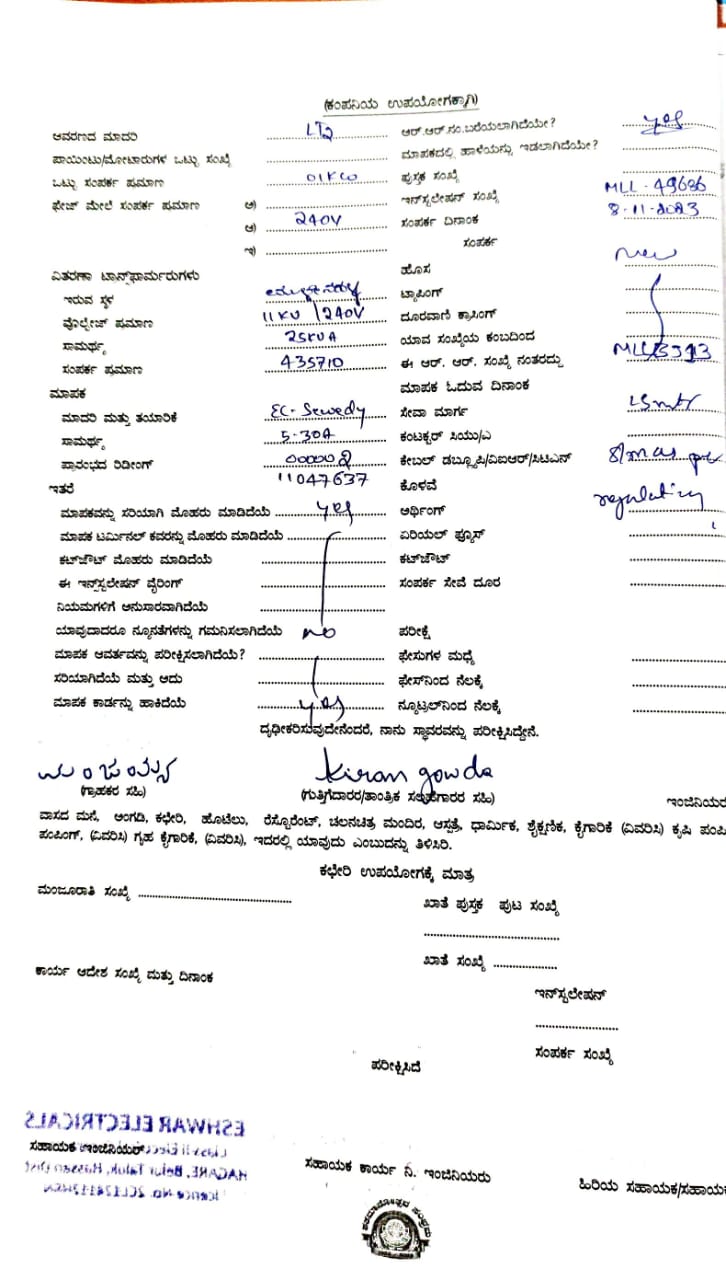 (ಕಂಪನಿಯ ಉಪಯೋಗಕ್ಕಾಗಿ)
ಆವರಣದ ಮಾದರಿ LT2 ಆರ್.ಆರ್.ನಂ.ಬರೆಯಲಾಗಿದೆಯೇ? yes
ಪಾಯಿಂಟು/ಮೋಟಾರುಗಳ ಒಟ್ಟು ಸಂಖ್ಯೆ ಮಾಪಕದಲ್ಲಿ ಹಾಳೆಯನ್ನು ಇಡಲಾಗಿದೆಯೇ?
ಒಟ್ಟು ಸಂಪರ್ಕ ಪ್ರಮಾಣ 01KW ಪುಸ್ತಕ ಸಂಖ್ಯೆ
ಫೇಜ್ ಮೇಲೆ ಸಂಪರ್ಕ ಪ್ರಮಾಣ ಅ) ಇನ್‌ಸ್ಟಲೇಷನ್ ಸಂಖ್ಯೆ MLL-49686
ಆ) 240V ಸಂಪರ್ಕ ದಿನಾಂಕ 8-11-2023
ಇ) ಸಂಪರ್ಕ
ವಿತರಣಾ ಟ್ರಾನ್ಸ್‌ಫಾರ್ಮರುಗಳು ಹೊಸ new
ಇರುವ ಸ್ಥಳ ಟ್ಯಾಪಿಂಗ್
ವೊಲ್ಟೇಜ್ ಪ್ರಮಾಣ 11KV/240V ದೂರವಾಣಿ ಕ್ರಾಸಿಂಗ್
ಸಾಮರ್ಥ್ಯ 25KVA ಯಾವ ಸಂಖ್ಯೆಯ ಕಂಬದಿಂದ
ಸಂಪರ್ಕ ಪ್ರಮಾಣ 435710 ಈ ಆರ್. ಆರ್. ಸಂಖ್ಯೆ ನಂತರದ್ದು
ಮಾಪಕ ಮಾಪಕ ಓದುವ ದಿನಾಂಕ
ಮಾದರಿ ಮತ್ತು ತಯಾರಿಕೆ EC-Sewedy ಸೇವಾ ಮಾರ್ಗ 25mtr
ಸಾಮರ್ಥ್ಯ 5-30A ಕಂಟಕ್ಟರ್ ಸಿಯು/ಎ
ಪ್ರಾರಂಭದ ರಿಡೀಂಗ್ ಕೇಬಲ್ ಡಬ್ಲ್ಯೂಪಿ/ವಿಐಆರ್/ಸಿಟಿಎಸ್
ಇತರೆ 11047637 ಕೊಳವೆ
ಮಾಪಕವನ್ನು ಸರಿಯಾಗಿ ಮೊಹರು ಮಾಡಿದೆಯೆ yes ಅರ್ಥಿಂಗ್ regulating
ಮಾಪಕ ಟರ್ಮಿನಲ್ ಕವರನ್ನು ಮೊಹರು ಮಾಡಿದೆಯೆ ಏರಿಯಲ್ ಫ್ಯೂಸ್
ಕಟ್‌ಔಟ್ ಮೊಹರು ಮಾಡಿದೆಯೆ ಕಟ್‌ಔಟ್
ಈ ಇನ್ಸ್ಟಲೇಷನ್ ವೈರಿಂಗ್ ಸಂಪರ್ಕ ಸೇವೆ ದೂರ
ನಿಯಮಗಳಿಗೆ ಅನುಸಾರವಾಗಿದೆಯೆ
ಯಾವುದಾದರೂ ನ್ಯೂನತೆಗಳನ್ನು ಗಮನಿಸಲಾಗಿದೆಯೆ no ಪರೀಕ್ಷೆ
ಮಾಪಕ ಆವರ್ತವನ್ನು ಪರೀಕ್ಷಿಸಲಾಗಿದೆಯೆ? ಫೇಸುಗಳ ಮಧ್ಯೆ
ಸರಿಯಾಗಿದೆಯೆ ಮತ್ತು ಅದು ಫೇಸ್‌ನಿಂದ ನೆಲಕ್ಕೆ
ಮಾಪಕ ಕಾರ್ಡನ್ನು ಹಾಕಿದೆಯೆ yes ನ್ಯೂಟ್ರಲ್‌ನಿಂದ ನೆಲಕ್ಕೆ
ದೃಢೀಕರಿಸುವುದೇನೆಂದರೆ, ನಾನು ಸ್ಥಾವರವನ್ನು ಪರೀಕ್ಷಿಸಿದ್ದೇನೆ.
Kiran gowda
(ಗ್ರಾಹಕರ ಸಹಿ) (ಗುತ್ತಿಗೆದಾರರ/ತಾಂತ್ರಿಕ ಸಲಹೆಗಾರರ ಸಹಿ) ಇಂಜಿನಿಯರ
ವಾಸದ ಮನೆ, ಅಂಗಡಿ, ಕಛೇರಿ, ಹೊಟೆಲು, ರೆಸ್ಟೊರೆಂಟ್, ಚಲನಚಿತ್ರ ಮಂದಿರ, ಆಸ್ಪತ್ರೆ, ಧಾರ್ಮಿಕ, ಶೈಕ್ಷಣಿಕ, ಕೈಗಾರಿಕೆ (ವಿವರಿಸಿ) ಕೃಷಿ ಪಂಪಿ
ಪಂಪಿಂಗ್, (ವಿವರಿಸಿ) ಗೃಹ ಕೈಗಾರಿಕೆ, (ವಿವರಿಸಿ), ಇದರಲ್ಲಿ ಯಾವುದು ಎಂಬುದನ್ನು ತಿಳಿಸಿರಿ.
ಕಛೇರಿ ಉಪಯೋಗಕ್ಕೆ ಮಾತ್ರ
ಮಂಜೂರಾತಿ ಸಂಖ್ಯೆ ಖಾತೆ ಪುಸ್ತಕ ಪುಟ ಸಂಖ್ಯೆ
ಖಾತೆ ಸಂಖ್ಯೆ
ಕಾರ್ಯ ಆದೇಶ ಸಂಖ್ಯೆ ಮತ್ತು ದಿನಾಂಕ
ಇನ್‌ಸ್ಟಲೇಷನ್
ಸಂಪರ್ಕ ಸಂಖ್ಯೆ
ಪರೀಕ್ಷಿಸಿದೆ
ESHWAR ELECTRICALS
ಸಹಾಯಕ ಇಂಜಿನಿಯರ್
HAGARE, Belur Taluk, Hassan Dist
ಸಹಾಯಕ ಕಾರ್ಯ ನಿ. ಇಂಜಿನಿಯರು
ಹಿರಿಯ ಸಹಾಯಕ/ಸಹಾಯಕ